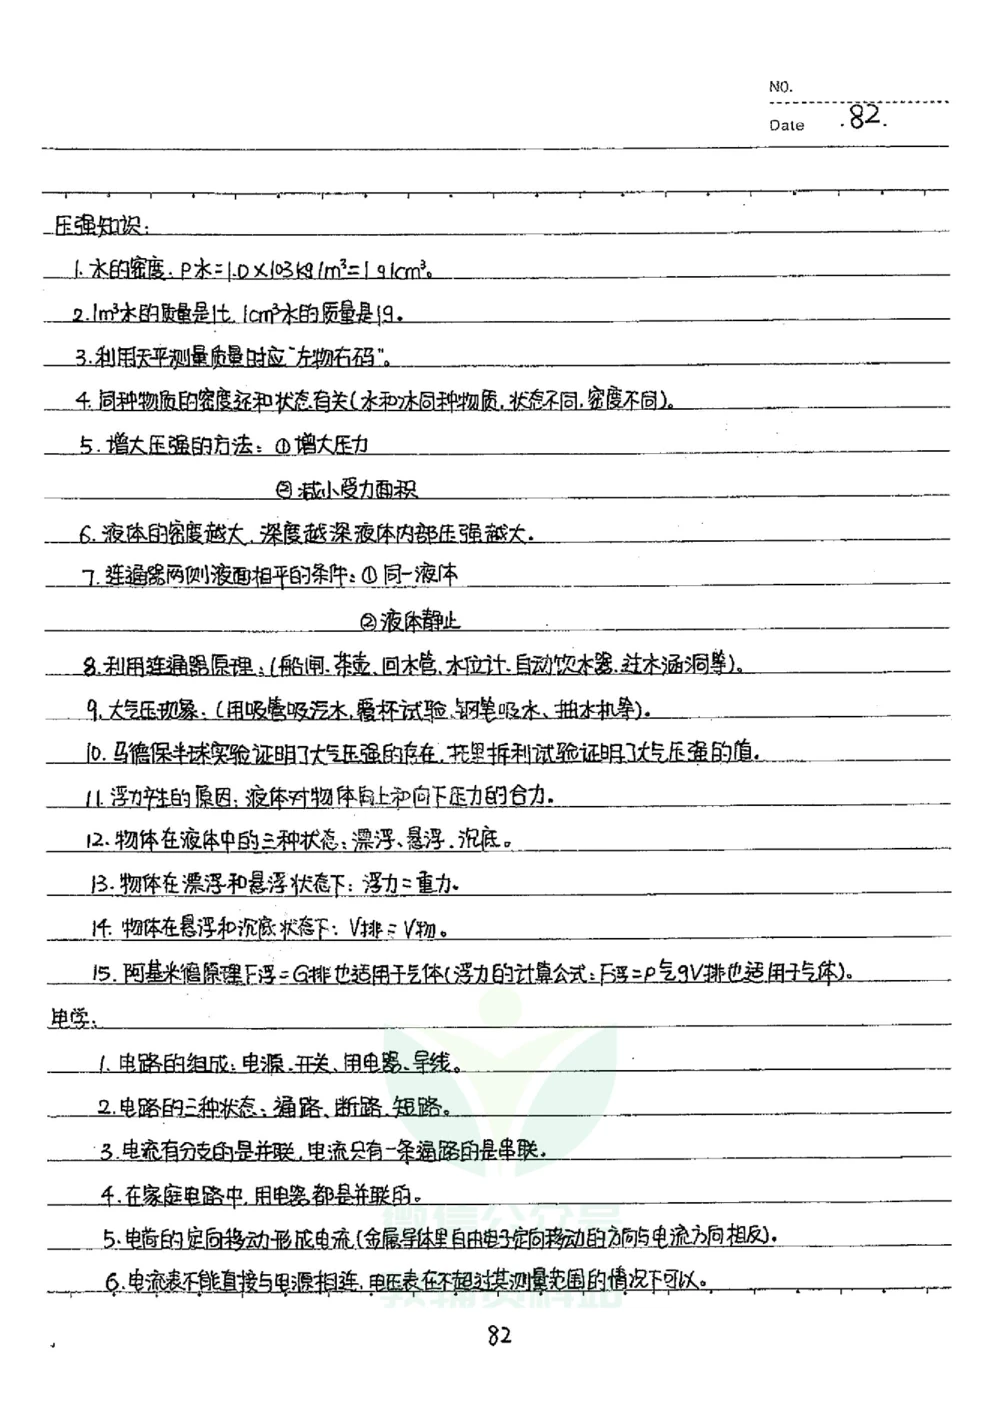 NO.
Date .82.
压强知识:
1.水的密度.ρ水=1.0×103kg/m³=1g/cm³。
2.1m³水的质量是1t,1cm³水的质量是1g。
3.利用天平测量质量时应“左物右码”。
4.同种物质的密度还和状态有关(水和冰同种物质.状态不同.密度不同)。
5.增大压强的方法:①增大压力
②减小受力面积
6.液体的密度越大,深度越深液体内部压强越大.
7.连通器两侧液面相平的条件:①同一液体
②液体静止
8.利用连通器原理:(船闸、茶壶、回水管、水位计、自动饮水器、过水涵洞等)。
9.大气压现象:(用吸管吸汽水、覆杯试验、钢笔吸水、抽水机等)。
10.马德保半球实验证明了大气压强的存在,托里拆利试验证明了大气压强的值.
11.浮力产生的原因:液体对物体向上和向下压力的合力.
12.物体在液体中的三种状态:漂浮、悬浮、沉底。
13.物体在漂浮和悬浮状态下:浮力=重力.
14.物体在悬浮和沉底状态下:V排=V物。
15.阿基米德原理F浮=G排也适用于气体(浮力的计算公式:F浮=ρ气gV排也适用于气体)。
电学:
1.电路的组成:电源、开关、用电器、导线。
2.电路的三种状态:通路、断路、短路。
3.电流有分支的是并联,电流只有一条通路的是串联.
4.在家庭电路中,用电器都是并联的。
5.电荷的定向移动形成电流(金属导体里自由电子定向移动的方向与电流方向相反).
6.电流表不能直接与电源相连,电压表在不超过其测量范围的情况下可以。
微信公众号
教辅资料站
82